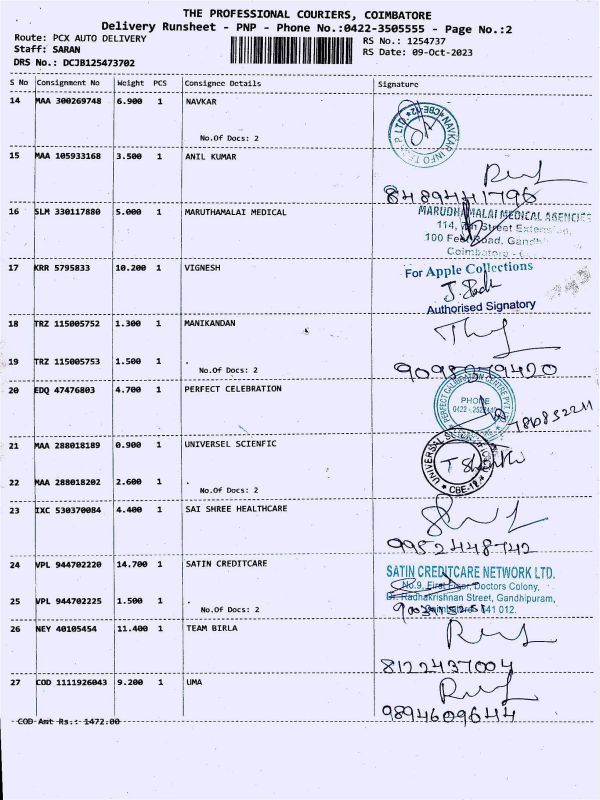 THE PROFESSIONAL COURIERS, COIMBATORE
Delivery Runsheet - PNP - Phone No.:0422-3505555 - Page No.:2
Route: PCX AUTO DELIVERY RS No.: 1254737
Staff: SARAN RS Date: 09-Oct-2023
DRS No.: DCJB125473702
S No Consignment No Weight PCS Consignee Details Signature
14 MAA 300269748 6.900 1 NAVKAR
No.Of Docs: 2
NAVKAR INFO P LTD. CBE-12
15 MAA 105933168 3.500 1 ANIL KUMAR
8489441796
16 SLM 330117880 5.000 1 MARUTHAMALAI MEDICAL
MARUDHAMALAI MEDICAL AGENCIES
114, Street Extension,
100 Feet Road, Gandhi
Coimbatore -
17 KRR 5795833 10.200 1 VIGNESH
For Apple Collections
Authorised Signatory
18 TRZ 115005752 1.300 1 MANIKANDAN
19 TRZ 115005753 1.500 1 .
No.Of Docs: 2
9098059420
20 EDQ 47476803 4.700 1 PERFECT CELEBRATION
PERFECT CALIBRATION CENTRE PVT LTD
PHONE
21 MAA 288018189 0.900 1 UNIVERSEL SCIENFIC
UNIVERSAL
CBE-12
22 MAA 288018202 2.600 1 .
No.Of Docs: 2
23 IXC 530370084 4.400 1 SAI SHREE HEALTHCARE
9952448742
24 VPL 944702220 14.700 1 SATIN CREDITCARE
SATIN CREDITCARE NETWORK LTD.
No.9, First Floor, Doctors Colony,
Dr. Radhakrishnan Street, Gandhipuram,
641 012.
25 VPL 944702225 1.500 1 .
No.Of Docs: 2
26 NEY 40105454 11.400 1 TEAM BIRLA
8122437004
27 COD 1111926043 9.200 1 UMA
9894609644
COD Amt Rs.: 1472.00